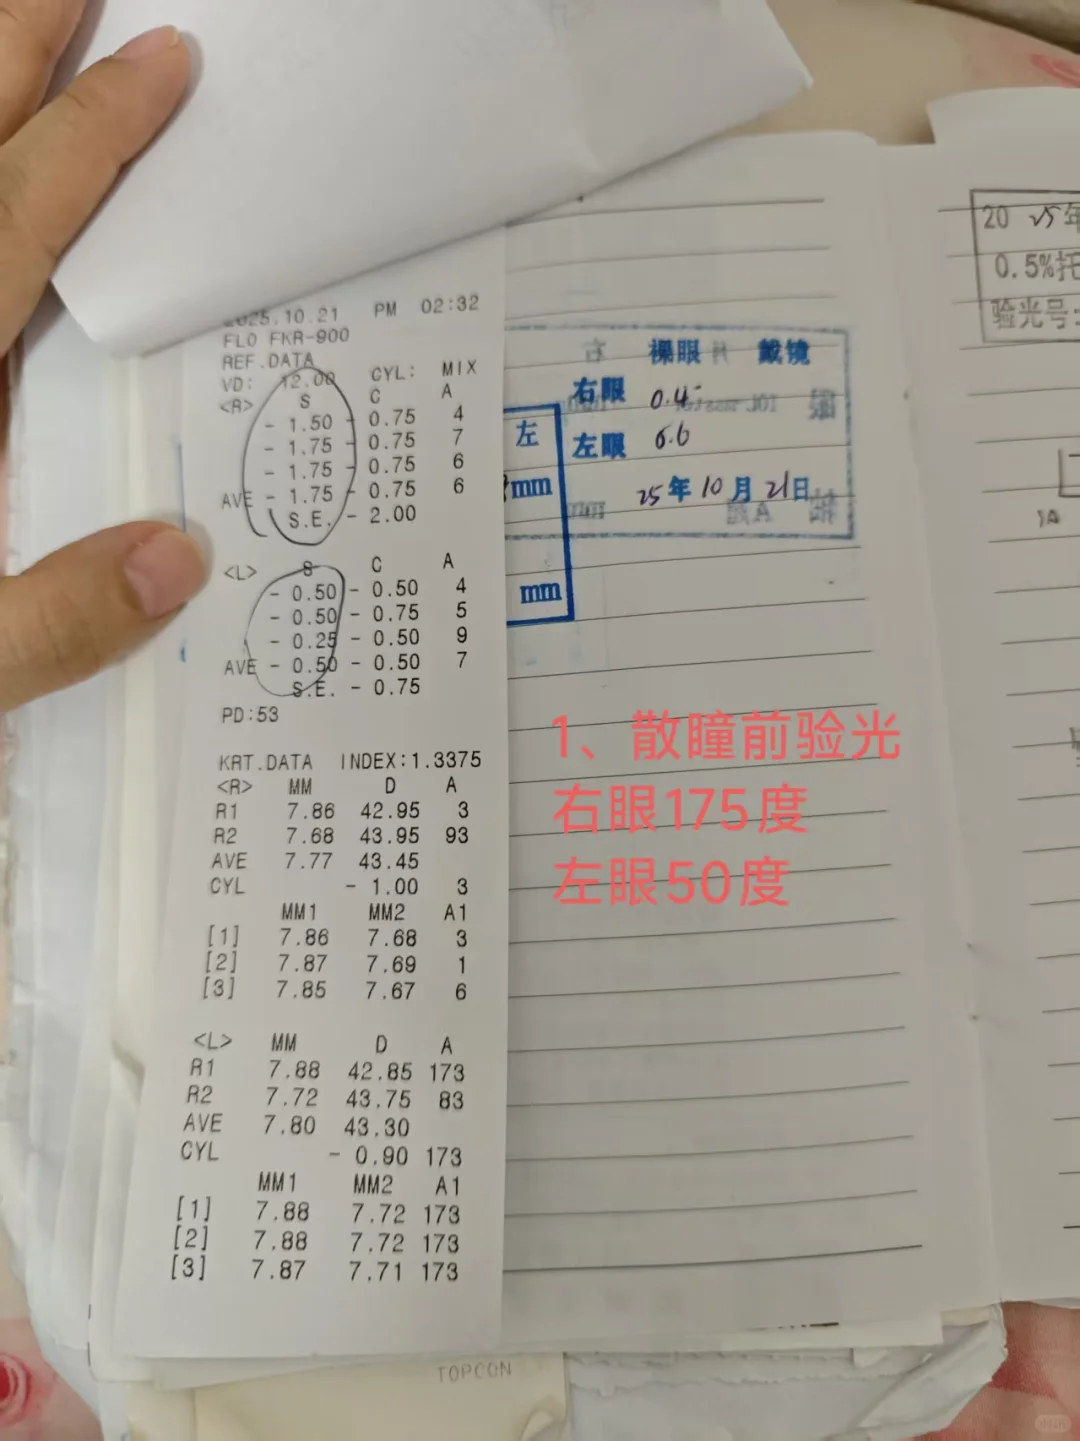 2025.10.21 PM 02:32
FLO FKR-900
REF.DATA
VD: 12.00 CYL: MIX
<R> S C A
- 1.50 - 0.75 4
- 1.75 - 0.75 7
- 1.75 - 0.75 6
AVE - 1.75 - 0.75 6
S.E. - 2.00
<L> S C A
- 0.50 - 0.50 4
- 0.50 - 0.75 5
- 0.25 - 0.50 9
AVE - 0.50 - 0.50 7
S.E. - 0.75
PD:53
KRT.DATA INDEX:1.3375
<R> MM D A
R1 7.86 42.95 3
R2 7.68 43.95 93
AVE 7.77 43.45
CYL - 1.00 3
MM1 MM2 A1
[1] 7.86 7.68 3
[2] 7.87 7.69 1
[3] 7.85 7.67 6
<L> MM D A
R1 7.88 42.85 173
R2 7.72 43.75 83
AVE 7.80 43.30
CYL - 0.90 173
MM1 MM2 A1
[1] 7.88 7.72 173
[2] 7.88 7.72 173
[3] 7.87 7.71 173
TOPCON
左
mm
mm
裸眼 戴镜
右眼 0.4
左眼 0.6
25年10月21日
1、散瞳前验光
右眼175度
左眼50度
2025年
0.5%托
验光号: